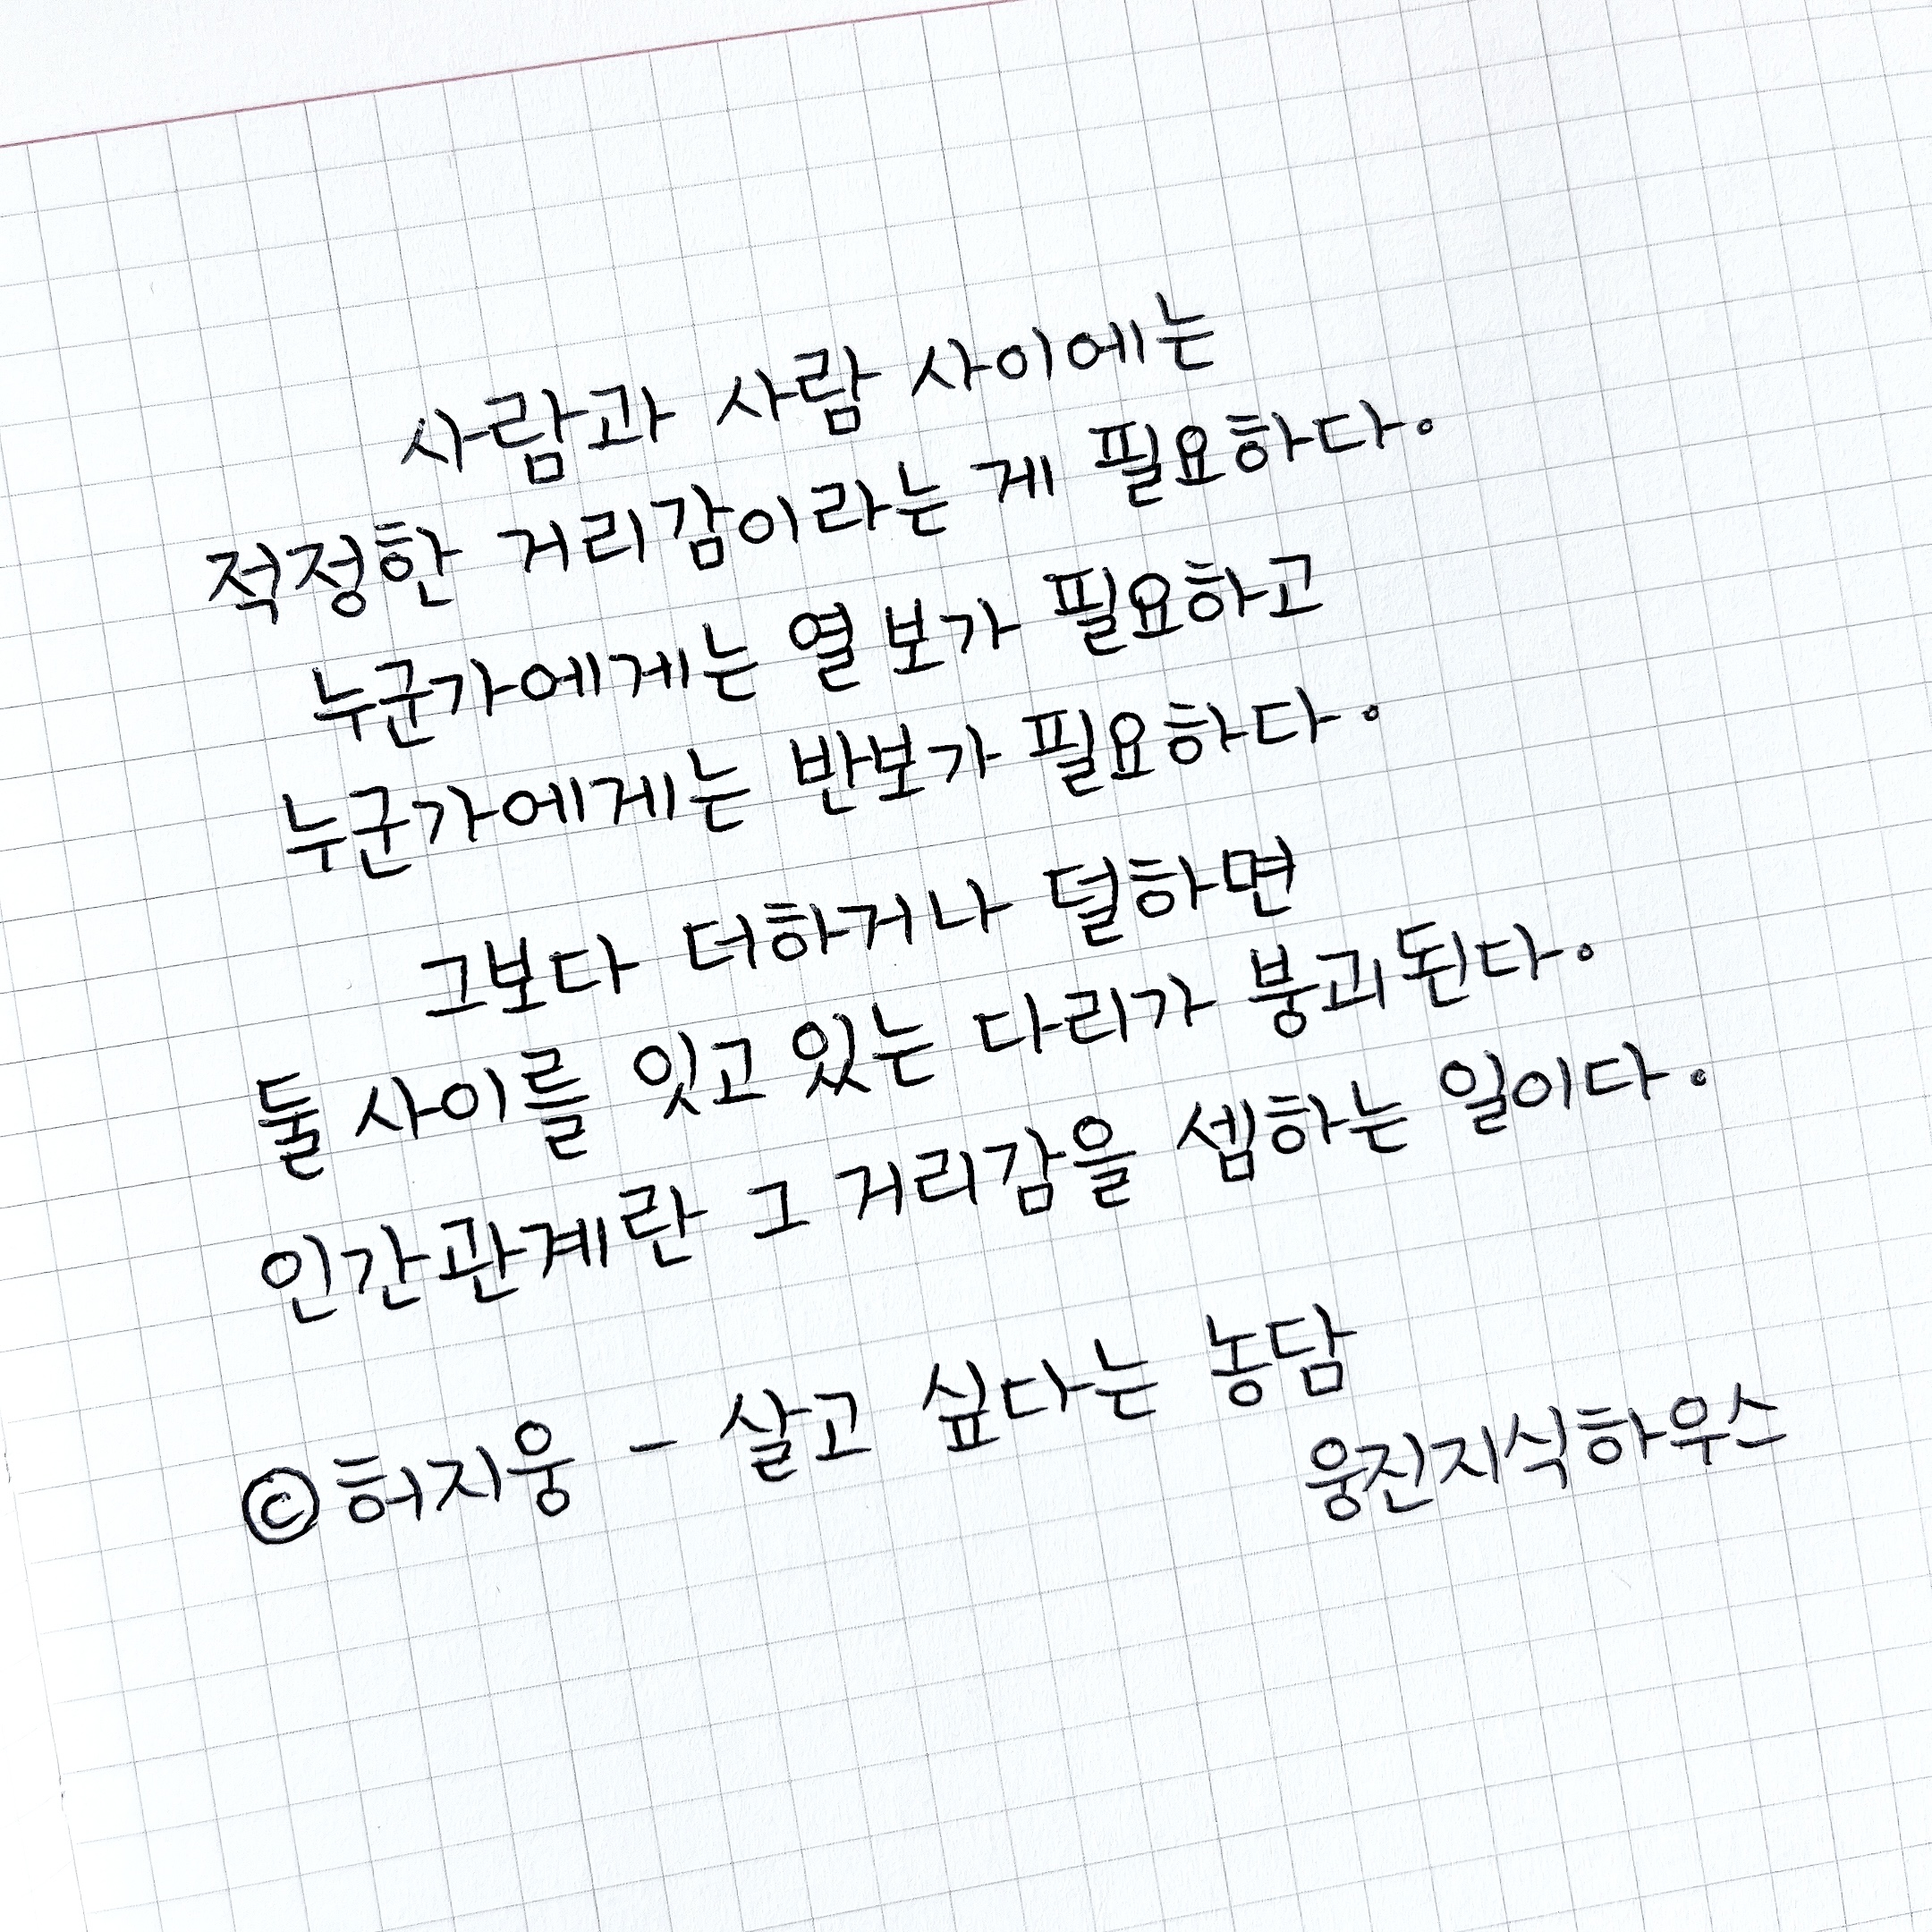 사람과 사람 사이에는
적정한 거리감이라는 게 필요하다.
누군가에게는 열 보가 필요하고
누군가에게는 반보가 필요하다.
그보다 더하거나 덜하면
둘 사이를 잇고 있는 다리가 붕괴된다.
인간관계란 그 거리감을 셉하는 일이다.
©허지웅 - 살고 싶다는 농담
웅진지식하우스